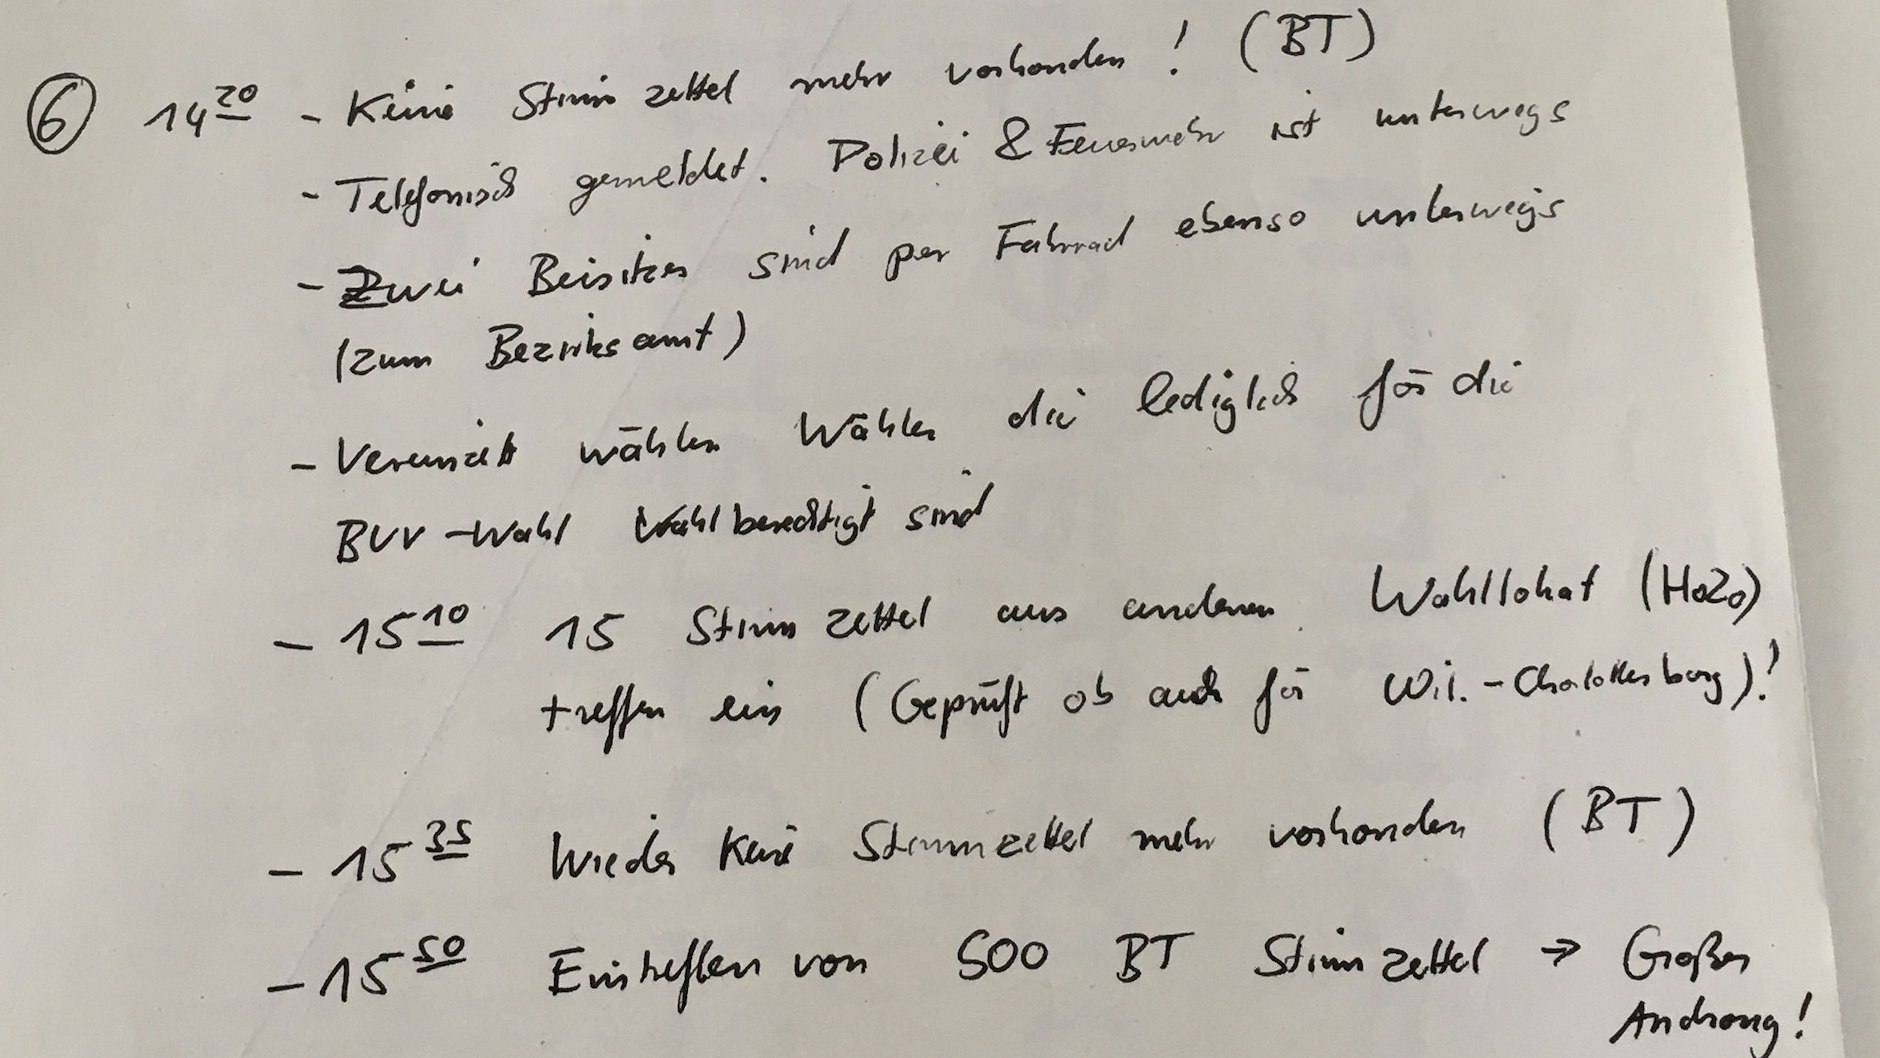 ⑥ 14²⁰ - Keine Stimmzettel mehr vorhanden! (BT)
- Telefonisch gemeldet. Polizei & Feuerwehr ist unterwegs
- Zwei Beisitzer sind per Fahrrad ebenso unterwegs
(zum Bezirksamt)
- Vereinzelt wählen Wähler die lediglich für die
BVV-Wahl Wahlberechtigt sind
- 15¹⁰ 15 Stimmzettel aus anderen Wahllokal (HoZo)
treffen ein (Geprüft ob auch für Wil.-Charlottenburg)!
- 15³⁵ Wieder keine Stimmzettel mehr vorhanden (BT)
- 15⁵⁰ Eintreffen von 500 BT Stimmzettel → Großer
Andrang!